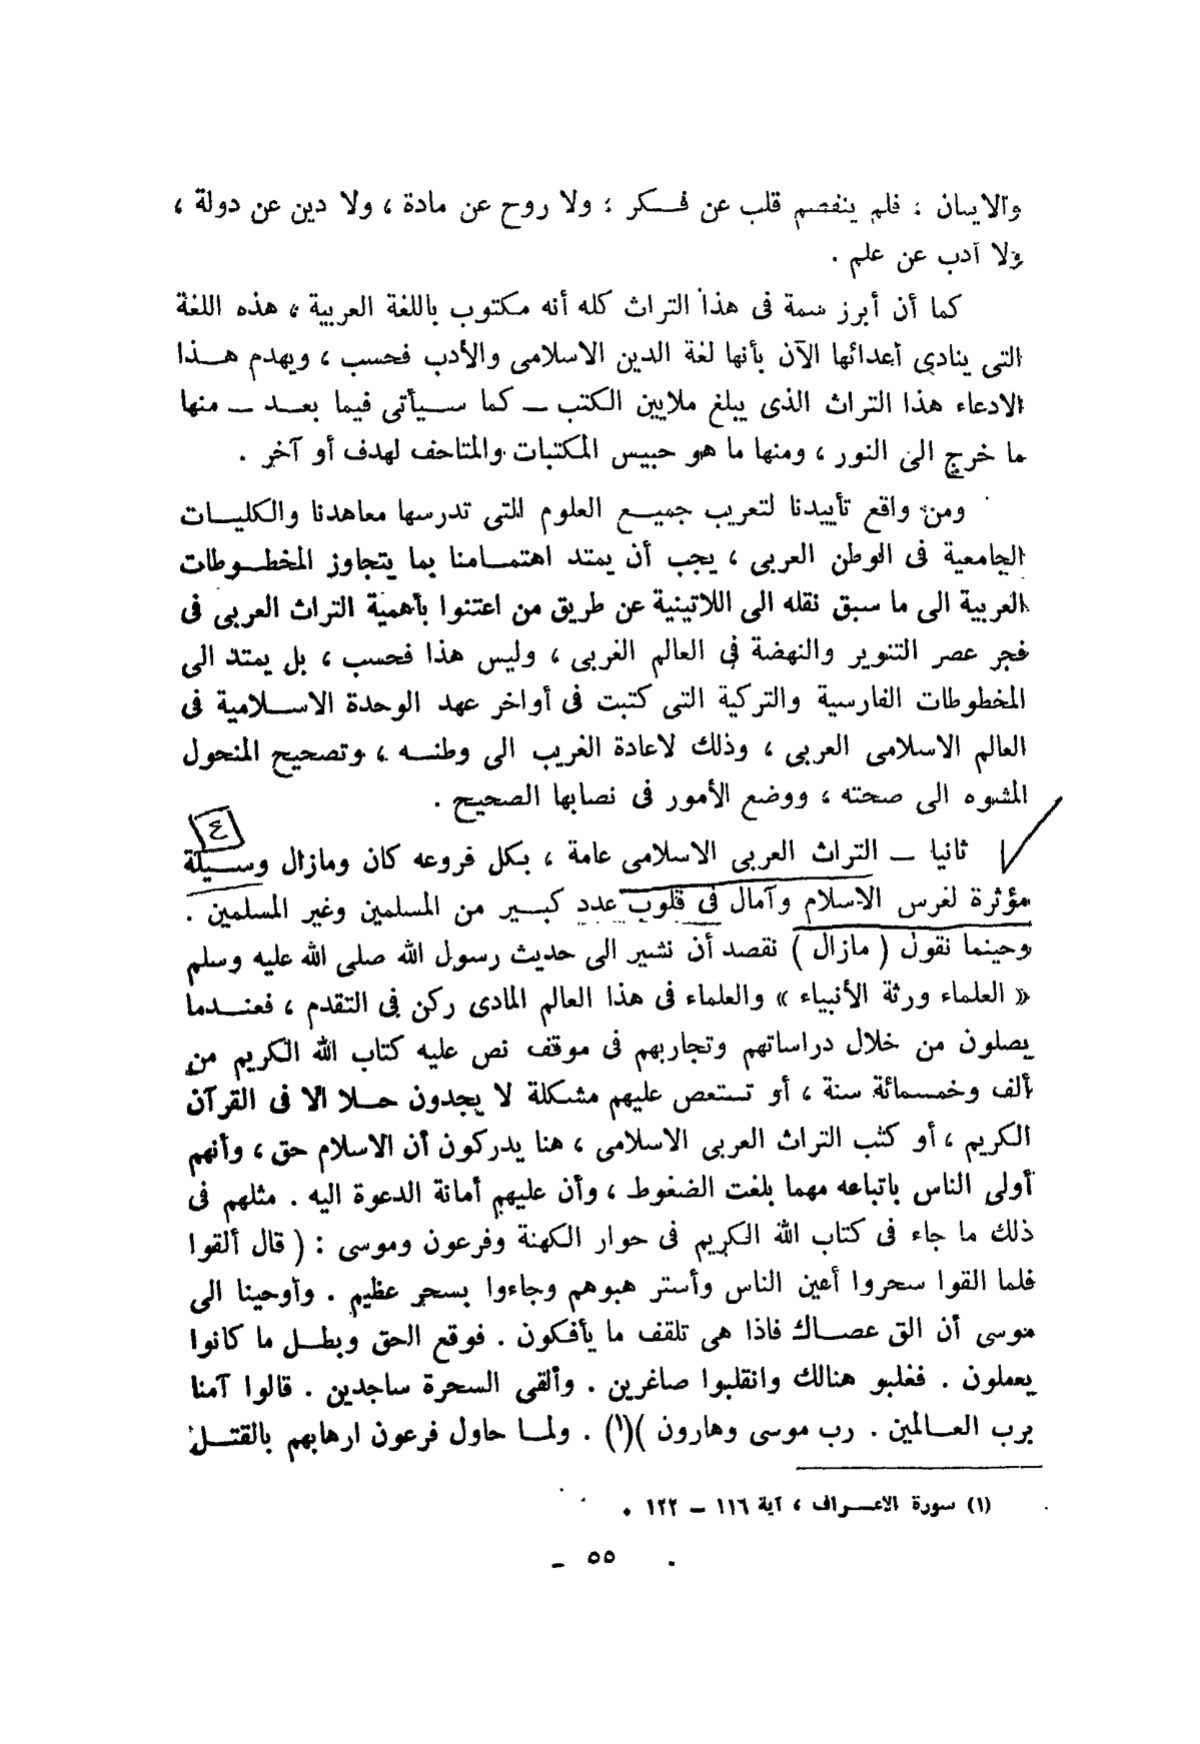 والايمان ؛ فلم ينفصم قلب عن فـكر ؛ ولا روح عن مادة ، ولا دين عن دولة ،
ولا أدب عن علم .
كما أن أبرز سمة فى هذا التراث كله أنه مكتوب باللغة العربية ، هذه اللغة
التى ينادى أعدائها الآن بأنها لغة الدين الاسلامى والأدب فحسب ، ويهدم هـذا
الادعاء هذا التراث الذى يبلغ ملايين الكتب ــ كما سـيأتى فيما بعـد ــ منها
ما خرج الى النور ، ومنها ما هو حبيس المكتبات والمتاحف لهدف أو آخر .
ومن واقع تأييدنا لتعريب جميـع العلوم التى تدرسها معاهدنا والكليـات
الجامعية فى الوطن العربى ، يجب أن يمتد اهتمـامنا بما يتجاوز المخطـوطات
العربية الى ما سبق نقله الى اللاتينية عن طريق من اعتنوا بأهمية التراث العربى فى
فجر عصر التنوير والنهضة فى العالم الغربى ، وليس هذا فحسب ، بل يمتد الى
المخطوطات الفارسية والتركية التى كتبت فى أواخر عهد الوحدة الاسـلامية فى
العالم الاسلامى العربى ، وذلك لاعادة الغريب الى وطنـه ، وتصحيح المنحول
المشوه الى صحته ، ووضع الأمور فى نصابها الصحيح .
٤
ثانيا ــ التراث العربى الاسلامى عامة ، بكل فروعه كان ومازال وسـيلة
مؤثرة لغرس الاسلام وآمال فى قلوب عدد كبـير من المسلمين وغير المسلمين .
وحينما نقول ( مازال ) نقصد أن نشير الى حديث رسول الله صلى الله عليه وسلم
« العلماء ورثة الأنبياء » والعلماء فى هذا العالم المادى ركن فى التقدم ، فعنـدما
يصلون من خلال دراساتهم وتجاربهم فى موقف نص عليه كتاب الله الكريم من
ألف وخمسمائة سنة ، أو تستعص عليهم مشكلة لا يجدون حـلا الا فى القرآن
الكريم ، أو كتب التراث العربى الاسلامى ، هنا يدركون أن الاسلام حق ، وأنهم
أولى الناس باتباعه مهما بلغت الضغوط ، وأن عليهم أمانة الدعوة اليه . مثلهم فى
ذلك ما جاء فى كتاب الله الكريم فى حوار الكهنة وفرعون وموسى : ( قال ألقوا
فلما القوا سحروا أعين الناس وأستر هبوهم وجاءوا بسحر عظيم . وأوحينا الى
موسى أن الق عصـاك فاذا هى تلقف ما يأفكون . فوقع الحق وبطـل ما كانوا
يعملون . فغلبو هنالك وانقلبوا صاغرين . وألقى السحرة ساجدين . قالوا آمنا
برب العـالمين . رب موسى وهارون )(١) . ولمـا حاول فرعون ارهابهم بالقتـل
(١) سورة الاعـراف ، آية ١١٦ ــ ١٢٢ .
٥٥ ــ